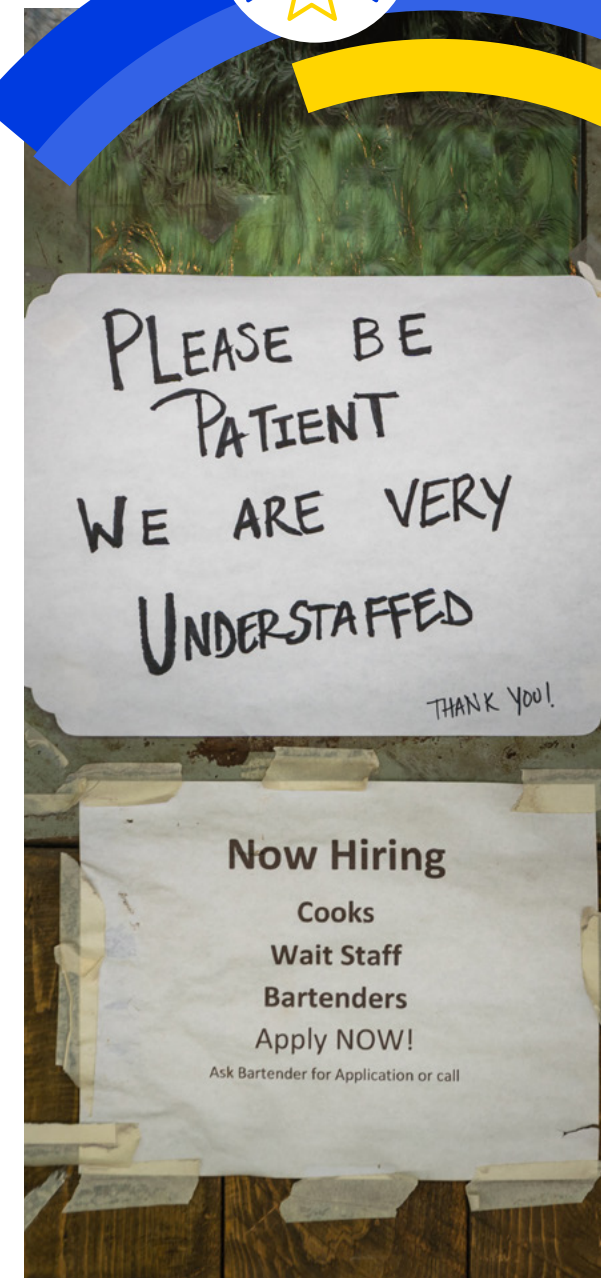 PLEASE BE
PATIENT
WE ARE VERY
UNDERSTAFFED
THANK YOU!
Now Hiring
Cooks
Wait Staff
Bartenders
Apply NOW!
Ask Bartender for Application or call